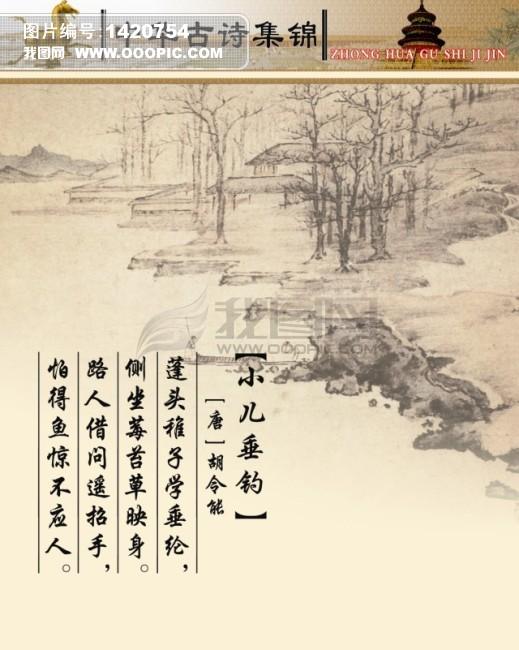 图片编号:1420754
我图网 www.OOOPIC.com
古诗集锦
ZHONG HUA GU SHI JI JIN
我图网
【小儿垂钓】
［唐］胡令能
蓬头稚子学垂纶，
侧坐莓苔草映身。
路人借问遥招手，
怕得鱼惊不应人。